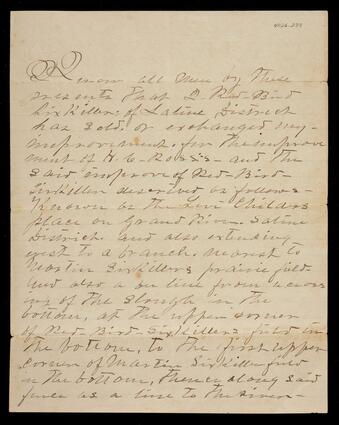 Know all Men by These
presents That I Red-Bird
SixKiller; of Saline District
has Sold or exchanged my-
improvement, for the improve
ment of H. C. Ross's- and the
Said improve of Red-Bird-
SixKiller described as follows-
Known as the Levi Childers
place on Grand River. Saline
District. and also extending
west to a branch, nearest to
Martin SixKillers prairie field
And also a on line from across
of the Slough in the
bottom, at the upper corner
of Red Bird SixKillers field in
the bottom, to the first upper
corner of Martin SixKiller field
in the bottom, thence along said
fence as a line to the river-